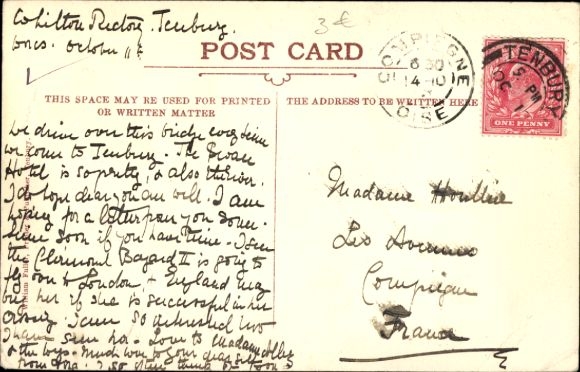 Whitton Rectory. Tenbury.
Worcs. October 11th
3€
POST CARD
COMPIEGNE
6 30
14-10
OISE
TENBURY
5 PM
OC
ONE PENNY
THIS SPACE MAY BE USED FOR PRINTED
OR WRITTEN MATTER
THE ADDRESS TO BE WRITTEN HERE
We drive over this bridge every time
we come to Tenbury. The Swan
Hotel is so pretty & also the river.
I do hope dear you are well. I am
hoping for a letter from you some
time soon if you have time. I see
the Clément Bayard II is going to
fly over to London & England may
buy her if she is successful in her
crossing. I am so interested
I have seen her. Love to
& the boys. Much love to your dear self
from
Madame
Les Avenues
Compiègne
France